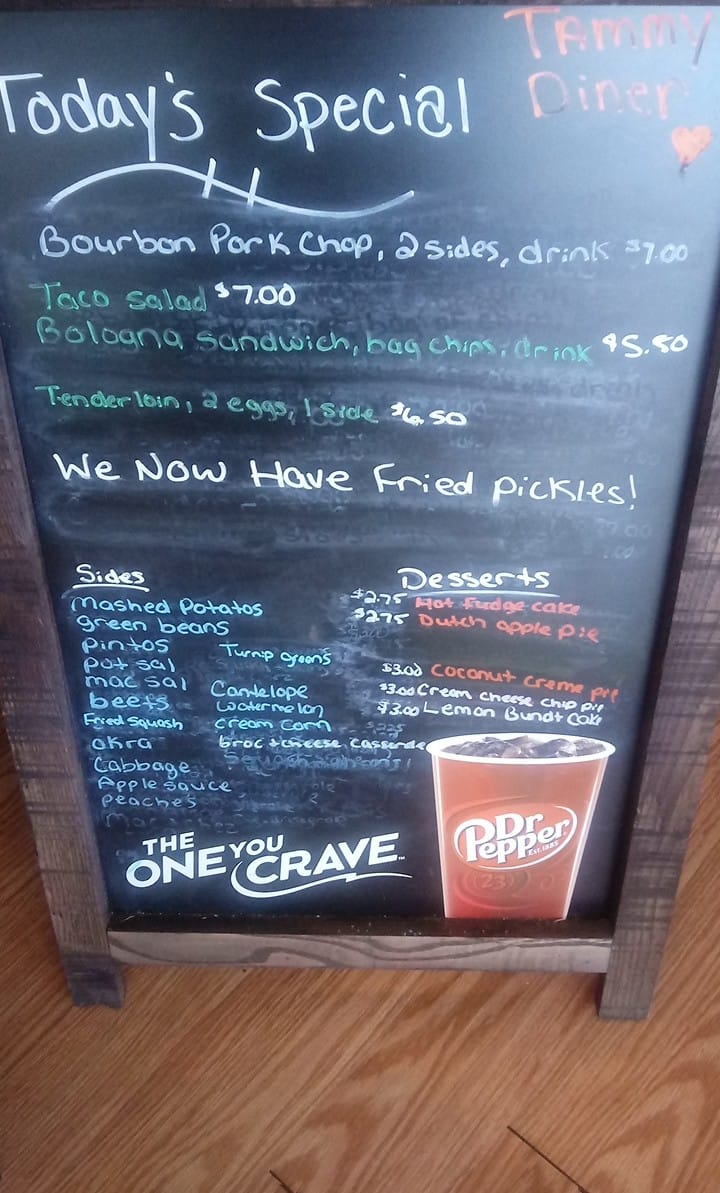 Tammy
Diner
Today's Special
Bourbon Pork Chop, 2 sides, drink $7.00
Taco salad $7.00
Bologna sandwich, bag chips, drink $5.50
Tenderloin, 2 eggs, 1 side $6.50
We Now Have Fried pickles!
Sides
Mashed Potatos
green beans
pintos
pot sal
mac sal
beets
Fried Squash
okra
Cabbage
Apple sauce
peaches
Turnip greens
Cantelope
watermelon
cream corn
broc + cheese casserole
Desserts
$2.75 Hot Fudge cake
$2.75 Dutch apple pie
$3.00 Coconut creme pie
$3.00 Cream cheese chip pie
$3.00 Lemon Bundt Cake
THE
ONE YOU
CRAVE™
Dr
Pepper
EST. 1885
23